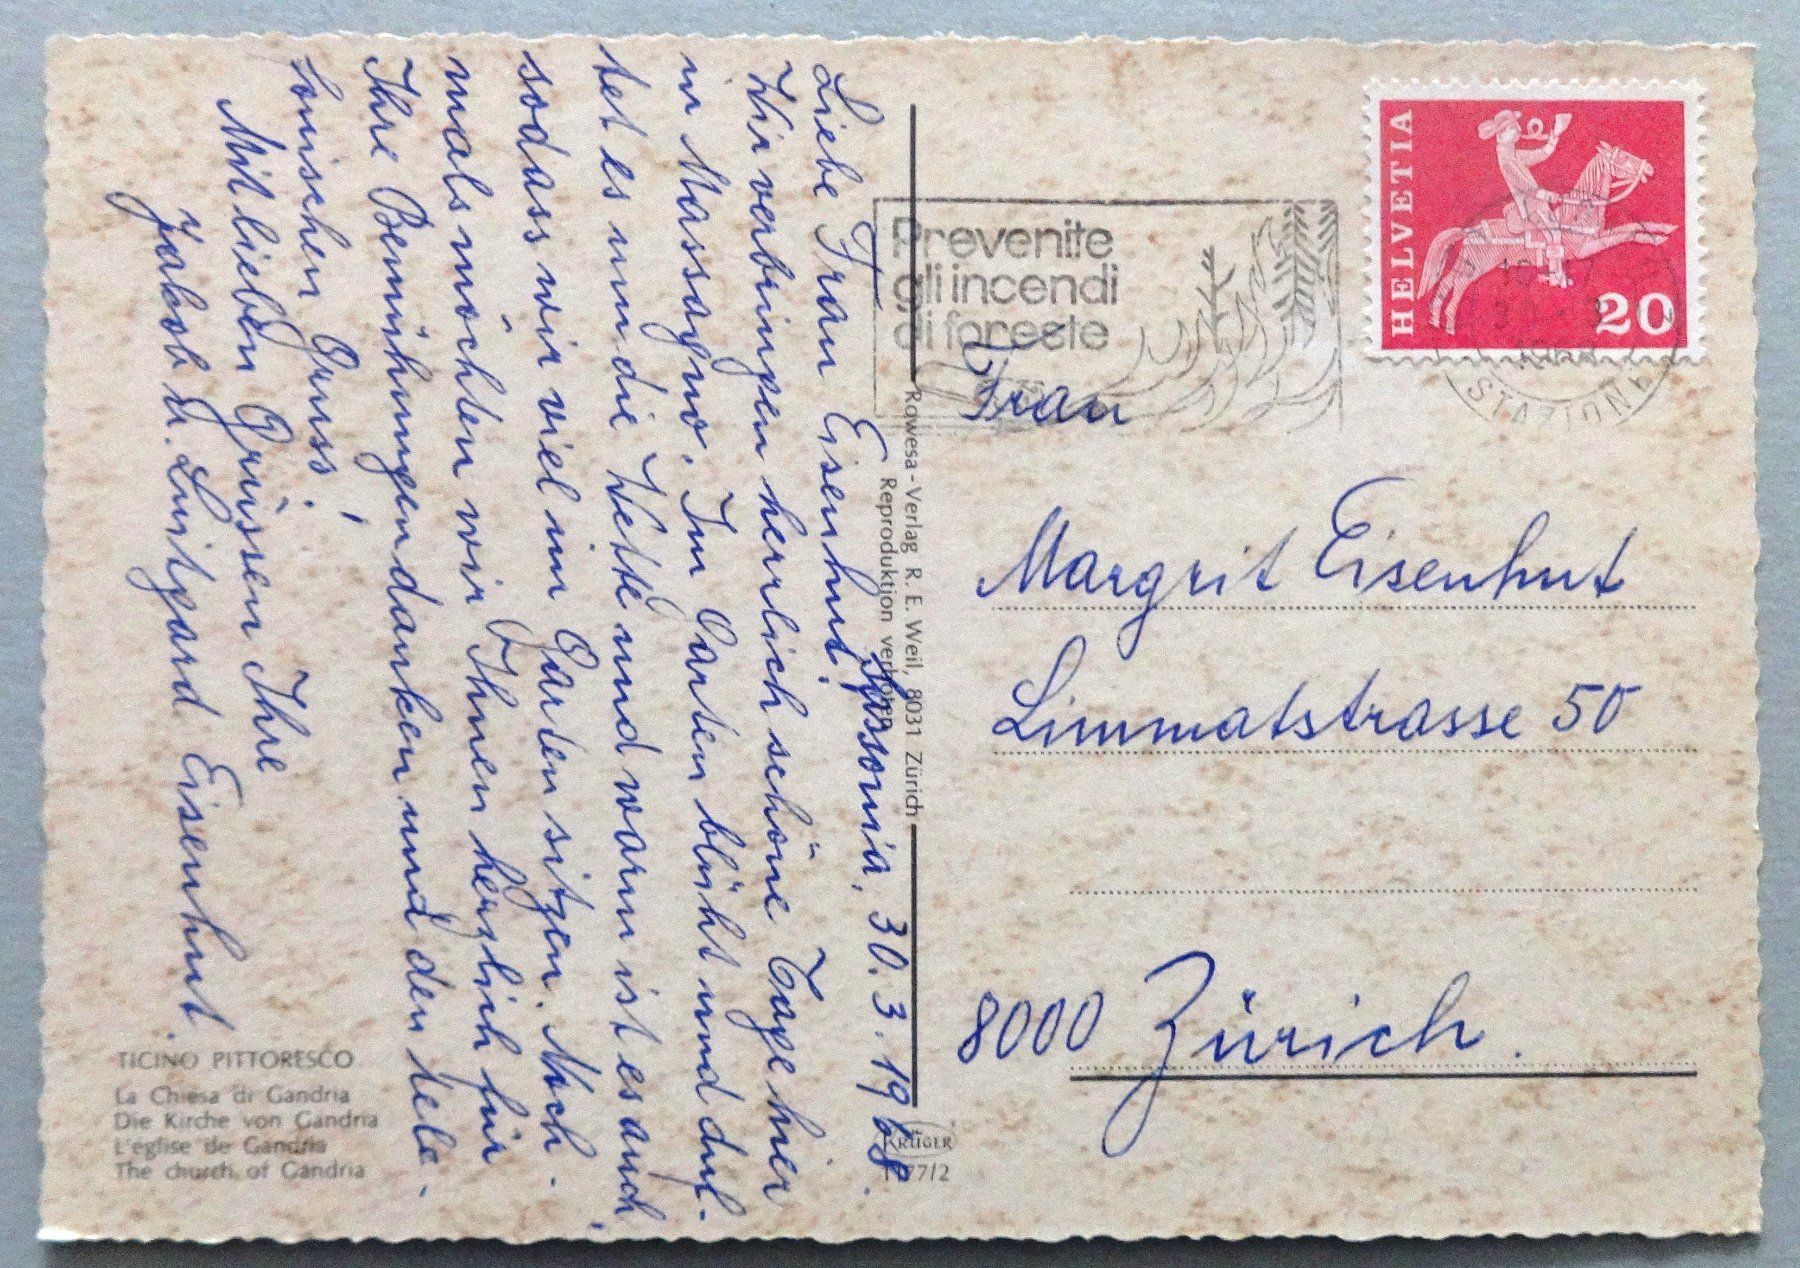 Savosa, 30.3.1968.
Liebe Frau Eisenhut!
Wir verbringen herrlich schöne Tage hier
in Massagno. Im Garten blüht und duf-
tet es um die Wette und warm ist es auch,
sodass wir viel im Garten sitzen. Noch-
mals möchten wir Ihnen herzlich für
Ihre Bemühungen danken und den tele-
fonischen Gruss!
Mit lieben Grüssen Ihre
Jakob u. Luitgard Eisenhut.
TICINO PITTORESCO
La Chiesa di Gandria
Die Kirche von Gandria
L'église de Gandria
The church of Gandria
Rowesa-Verlag R. E. Weil, 8031 Zürich
Reproduktion verboten
KRÜGER
Prevenite
gli incendi
di foreste
HELVETIA
20
STAZIONE
Frau
Margrit Eisenhut
Limmatstrasse 50
8000 Zürich.